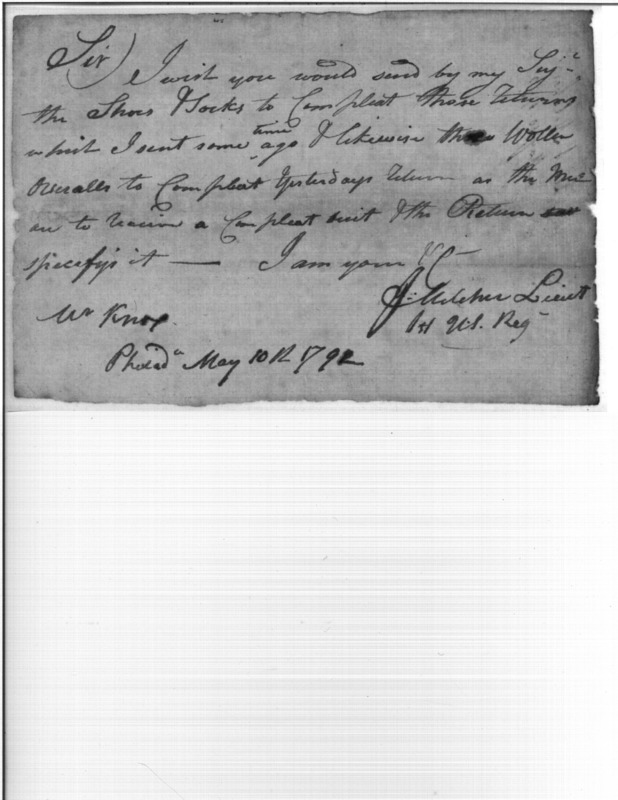 Sir) I wish you would send by my Serjt.
the Shoes & Socks to Compleat those Returns
which I sent some time ago & likewise the Wollen
Overalls to Compleat Yesterdays Return as the Men
are to receive a Compleat suit & the Return
specifys it — I am yours &c
Jn: Melcher Lieut
1st U.S. Regt
Mr Knox.
Philada May 10th 1792